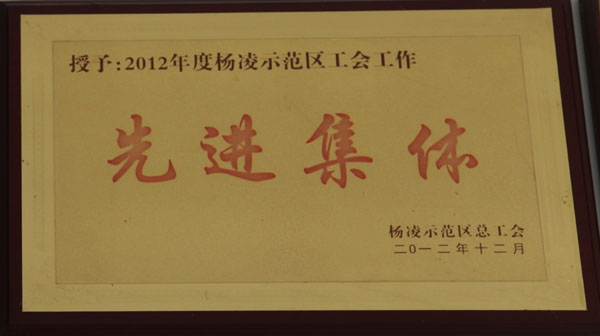 授予:2012年度杨凌示范区工会工作
先进集体
杨凌示范区总工会
二〇一二年十二月